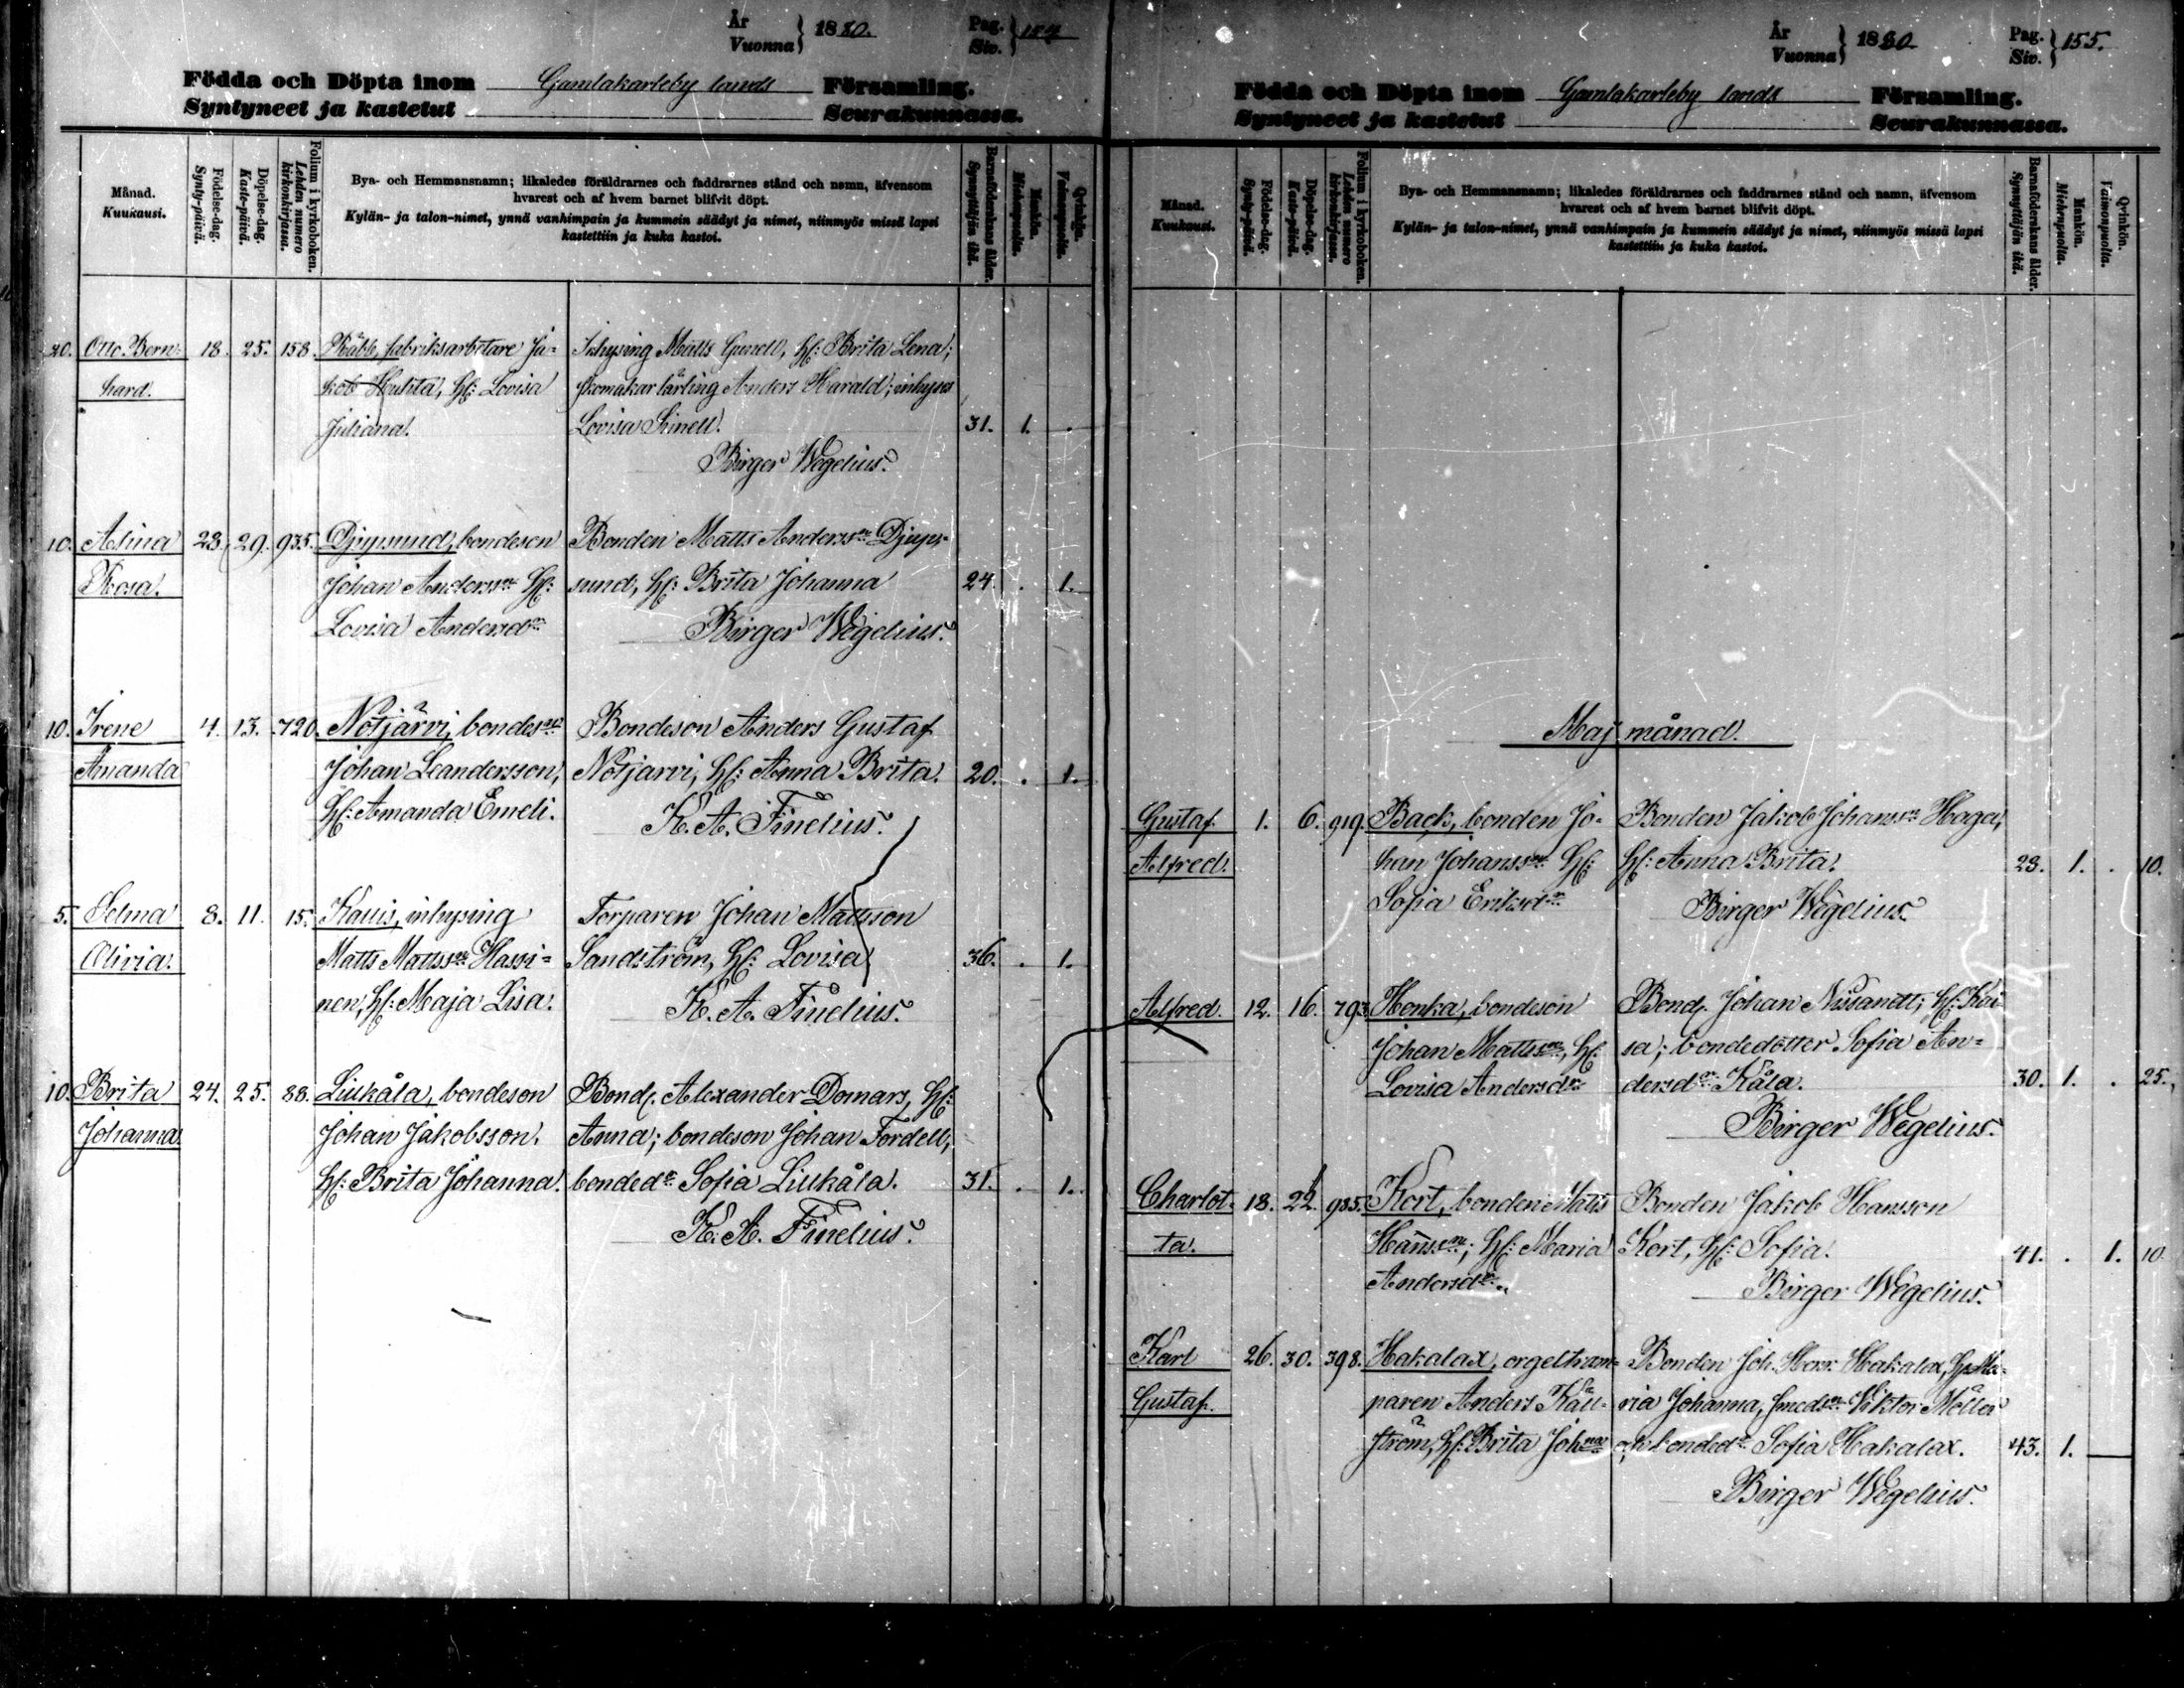 År
Vuonna } 1880.
Pag.
Siv. } 154
Födda och Döpta inom Gamlakarleby lands Församling.
Syntyneet ja kastetut Seurakunnassa.
Månad.
Kuukausi.
Födelse-dag.
Synty-päivä.
Döpelse-dag.
Kaste-päivä.
Folium i kyrkoboken.
Lehden numero
kirkonkirjassa.
Bya- och Hemmansnamn; likaledes föräldrarnes och faddrarnes stånd och namn, äfvensom
hvarest och af hvem barnet blifvit döpt.
Kylän- ja talon-nimet, ynnä vanhimpain ja kummein säädyt ja nimet, niinmyös missä lapsi
kastettiin ja kuka kastoi.
Barnaföderskans ålder.
Synnyttäjän ikä.
Mankön.
Miehenpuolta.
Qvinkön.
Vaimonpuolta.
20. Otto Bern- 18. 25. 158. Råbb, fabriksarbetare Ja- Inhysing Matts Gunell, H: Brita Lena;
hard. kob Huhta, H: Lovisa skomakar lärling Anders Harald; inhyses
Juliana. Lovisa Simell. 31. 1. .
Birger Wegelius.
10. Alina 23. 29. 935. Djupsund, bondeson Bonden Matts Anderssn Djups-
Rosa. Johan Anderssn H: sund, H: Brita Johanna 24. . 1.
Lovisa Andersdr Birger Wegelius.
10. Irene 4. 13. 720. Notjärvi, bondesn Bondeson Anders Gustaf
Amanda Johan Leandersson, Notjärvi, H: Anna Brita. 20. . 1.
H: Amanda Emeli. K. A. Finelius.
5. Selma 8. 11. 15. Kallis, inhysing Torparen Johan Mattsson
Olivia. Matts Mattssn Hassi- Sandström, H: Lovisa 36. . 1.
nen, H: Maja Lisa. K. A. Finelius.
10. Brita 24. 25. 88. Liukåla, bondeson Bond. Alexander Domars, H:
Johanna Johan Jakobsson, Anna; bondeson Johan Fordell,
H: Brita Johanna. bondedr Sofia Liukåla. 31. . 1.
K. A. Finelius.
År
Vuonna } 1880
Pag.
Siv. } 155.
Födda och Döpta inom Gamlakarleby lands Församling.
Syntyneet ja kastetut Seurakunnassa.
Månad.
Kuukausi.
Födelse-dag.
Synty-päivä.
Döpelse-dag.
Kaste-päivä.
Folium i kyrkoboken.
Lehden numero
kirkonkirjassa.
Bya- och Hemmansnamn; likaledes föräldrarnes och faddrarnes stånd och namn, äfvensom
hvarest och af hvem barnet blifvit döpt.
Kylän- ja talon-nimet, ynnä vanhimpain ja kummein säädyt ja nimet, niinmyös missä lapsi
kastettiin ja kuka kastoi.
Barnaföderskans ålder.
Synnyttäjän ikä.
Mankön.
Miehenpuolta.
Qvinkön.
Vaimonpuolta.
Maj månad.
Gustaf 1. 6. 919. Back, bonden Jo- Bonden Jakob Johanssn Haga,
Alfred. han Johanssn H: H: Anna Brita. 23. 1. . 10.
Sofia Eriksdr Birger Wegelius.
Alfred. 12. 16. 793. Honka, bondeson Bond. Johan H: Kai-
Johan Mattssn, H: sa; bondedotter Sofia An-
Lovisa Andersdr dersdr Kåla. 30. 1. . 25.
Birger Wegelius.
Charlot- 18. 22. 985. Kort, bonden Matts Bonden Jakob Hansson
ta. Hanssn; H: Maria Kort, H: Sofia. 41. . 1. 10.
Andersdr. Birger Wegelius.
Karl 26. 30. 398. Hakalax, orgeltram- Bonden Joh. Hakalax, H: Ma-
Gustaf. paren Anders Käll- ria Johanna, smedsn Viktor Möller
ström, H: Brita Johna och bondedr Sofia Hakalax. 43. 1.
Birger Wegelius.